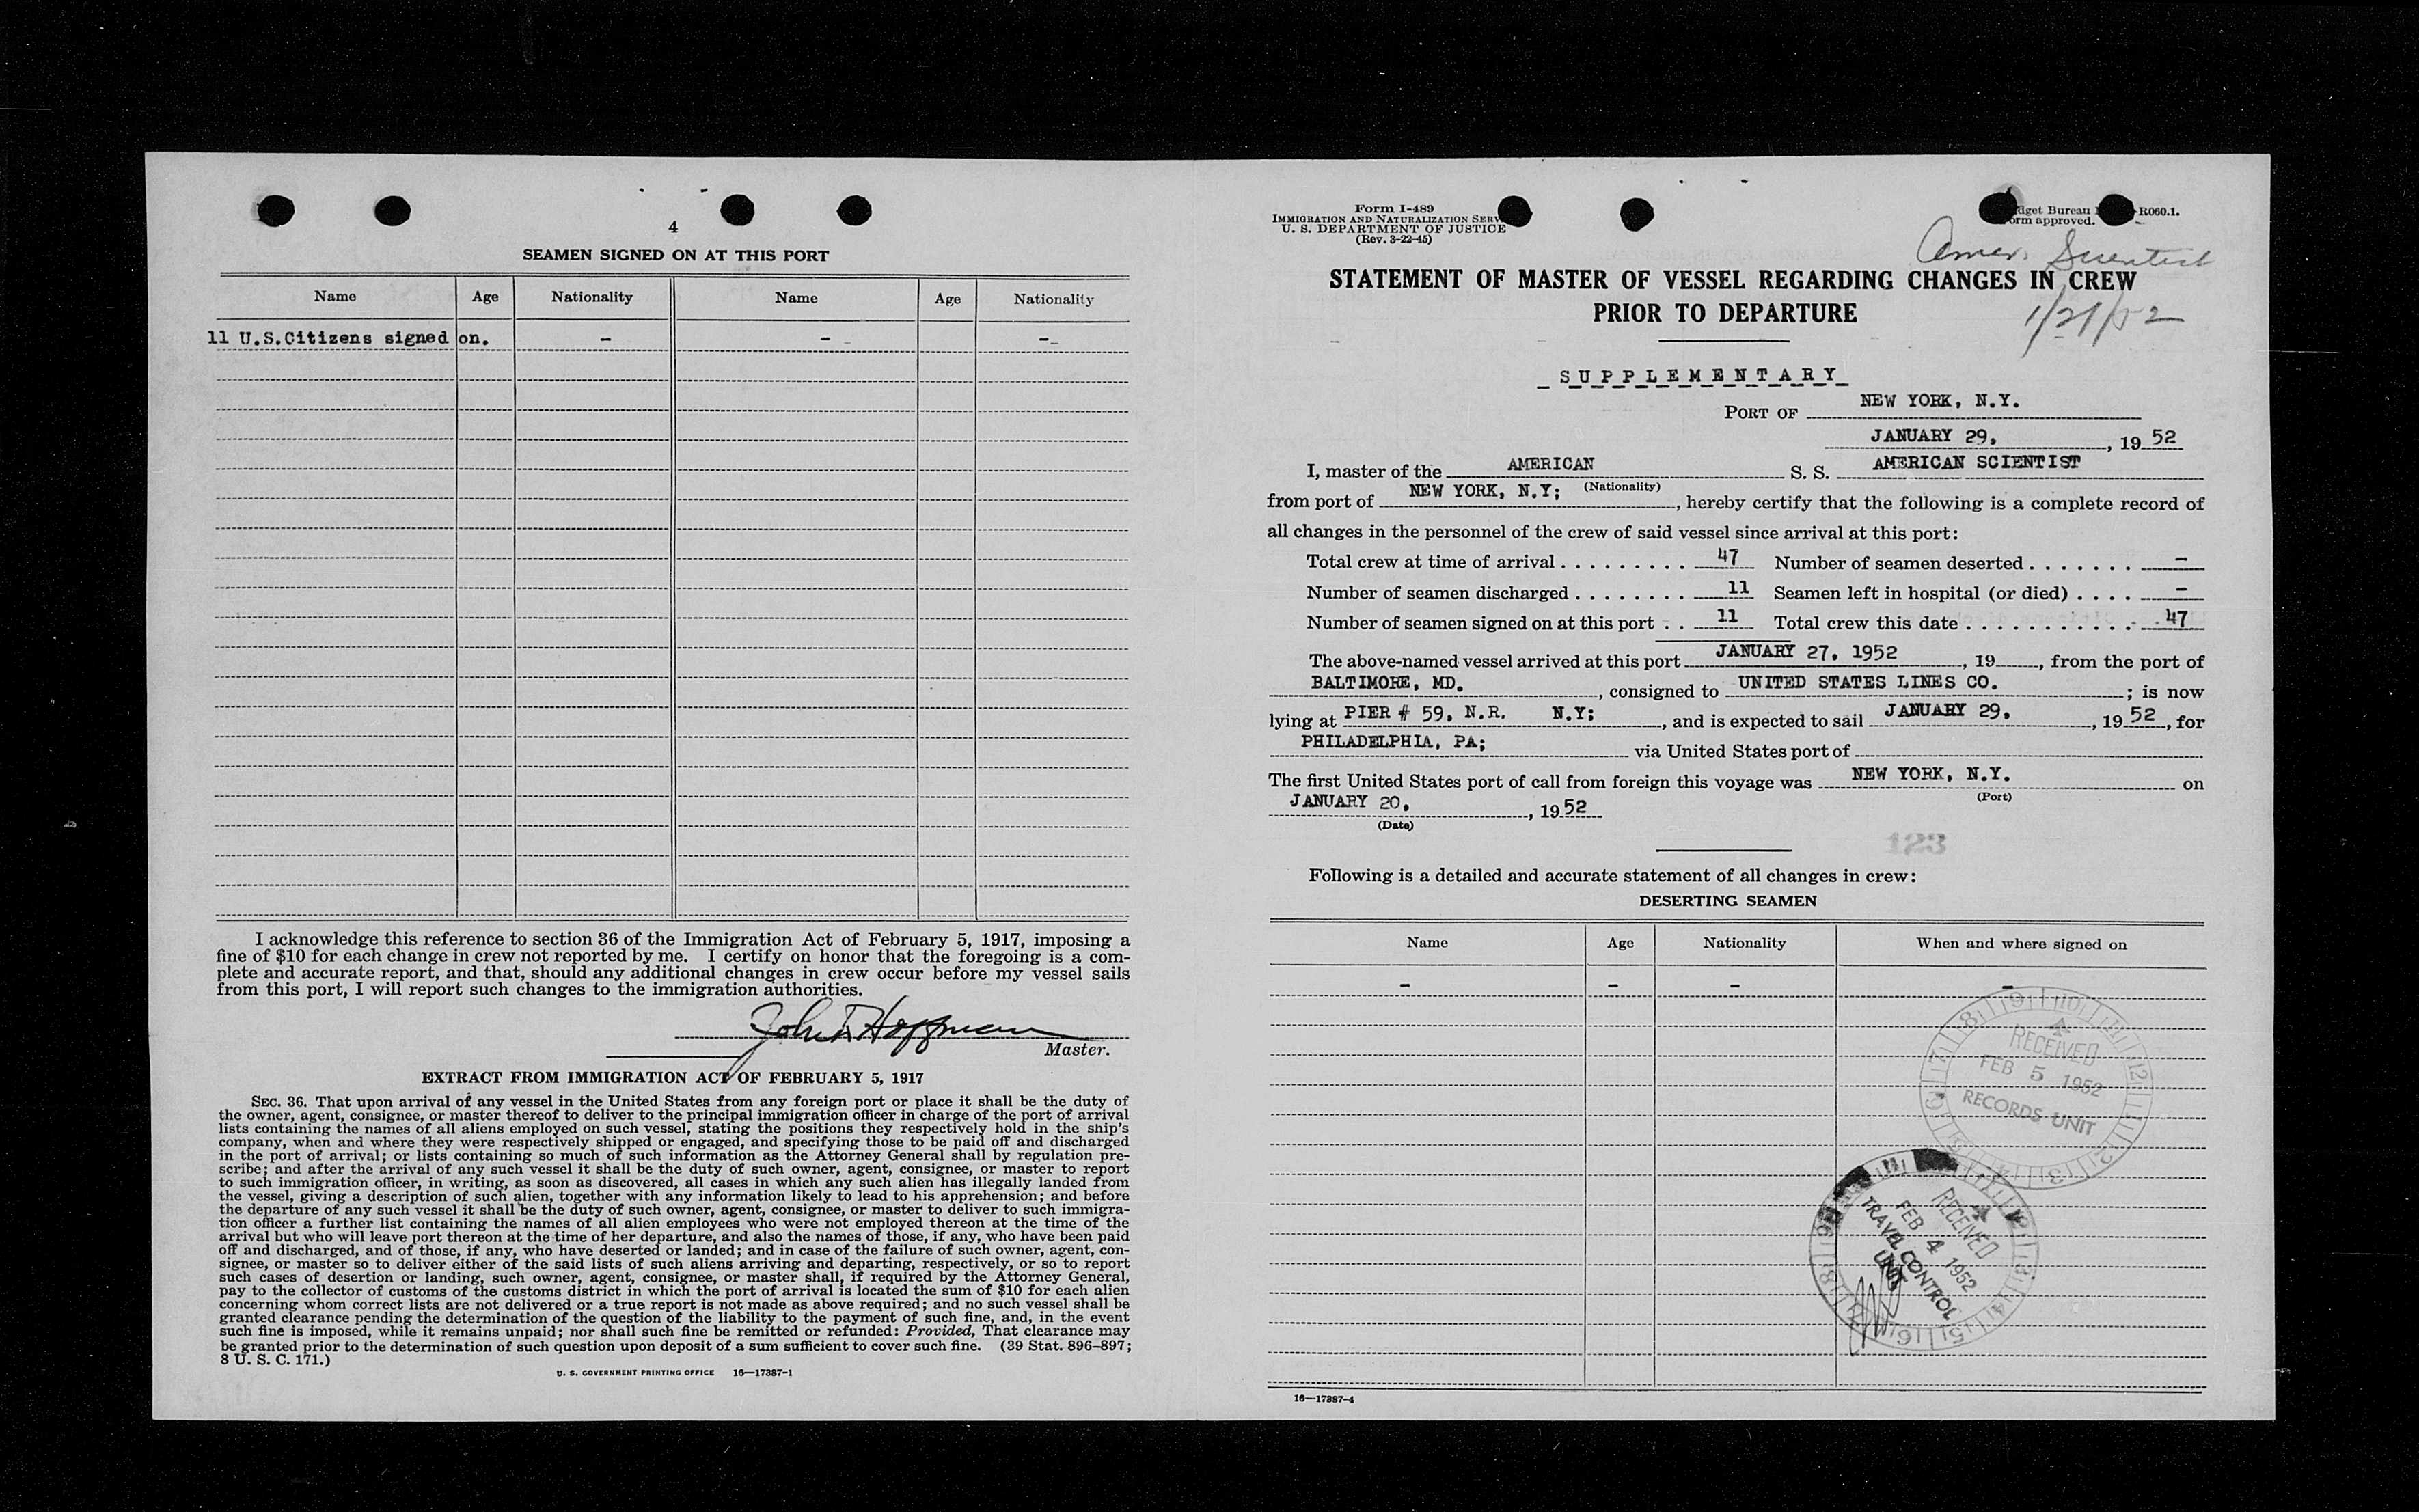 4
SEAMEN SIGNED ON AT THIS PORT
Name Age Nationality Name Age Nationality
11 U.S.Citizens signed on. - - -
I acknowledge this reference to section 36 of the Immigration Act of February 5, 1917, imposing a
fine of $10 for each change in crew not reported by me. I certify on honor that the foregoing is a com-
plete and accurate report, and that, should any additional changes in crew occur before my vessel sails
from this port, I will report such changes to the immigration authorities.
Hoffman
Master.
EXTRACT FROM IMMIGRATION ACT OF FEBRUARY 5, 1917
SEC. 36. That upon arrival of any vessel in the United States from any foreign port or place it shall be the duty of
the owner, agent, consignee, or master thereof to deliver to the principal immigration officer in charge of the port of arrival
lists containing the names of all aliens employed on such vessel, stating the positions they respectively hold in the ship's
company, when and where they were respectively shipped or engaged, and specifying those to be paid off and discharged
in the port of arrival; or lists containing so much of such information as the Attorney General shall by regulation pre-
scribe; and after the arrival of any such vessel it shall be the duty of such owner, agent, consignee, or master to report
to such immigration officer, in writing, as soon as discovered, all cases in which any such alien has illegally landed from
the vessel, giving a description of such alien, together with any information likely to lead to his apprehension; and before
the departure of any such vessel it shall be the duty of such owner, agent, consignee, or master to deliver to such immigra-
tion officer a further list containing the names of all alien employees who were not employed thereon at the time of the
arrival but who will leave port thereon at the time of her departure, and also the names of those, if any, who have been paid
off and discharged, and of those, if any, who have deserted or landed; and in case of the failure of such owner, agent, con-
signee, or master so to deliver either of the said lists of such aliens arriving and departing, respectively, or so to report
such cases of desertion or landing, such owner, agent, consignee, or master shall, if required by the Attorney General,
pay to the collector of customs of the customs district in which the port of arrival is located the sum of $10 for each alien
concerning whom correct lists are not delivered or a true report is not made as above required; and no such vessel shall be
granted clearance pending the determination of the question of the liability to the payment of such fine, and, in the event
such fine is imposed, while it remains unpaid; nor shall such fine be remitted or refunded: Provided, That clearance may
be granted prior to the determination of such question upon deposit of a sum sufficient to cover such fine. (39 Stat. 896–897;
8 U. S. C. 171.)
U. S. GOVERNMENT PRINTING OFFICE 16—17387-1
Form I-489
IMMIGRATION AND NATURALIZATION SERV
U. S. DEPARTMENT OF JUSTICE
(Rev. 3-22-45)
dget Bureau R060.1.
orm approved.
Amer. Scientist
STATEMENT OF MASTER OF VESSEL REGARDING CHANGES IN CREW
PRIOR TO DEPARTURE
SUPPLEMENTARY
PORT OF NEW YORK, N.Y.
JANUARY 29, , 19 52
I, master of the AMERICAN S. S. AMERICAN SCIENTIST
(Nationality)
from port of NEW YORK, N.Y; , hereby certify that the following is a complete record of
all changes in the personnel of the crew of said vessel since arrival at this port:
Total crew at time of arrival . . . . . . . . . 47 Number of seamen deserted . . . . . . . -
Number of seamen discharged . . . . . . . . 11 Seamen left in hospital (or died) . . . . -
Number of seamen signed on at this port . . 11 Total crew this date . . . . . . . . . . . . 47
The above-named vessel arrived at this port JANUARY 27, 1952 , 19 , from the port of
BALTIMORE, MD. , consigned to UNITED STATES LINES CO. ; is now
lying at PIER # 59, N.R. N.Y; , and is expected to sail JANUARY 29, , 19 52 , for
PHILADELPHIA, PA; via United States port of
The first United States port of call from foreign this voyage was NEW YORK, N.Y. on
(Port)
JANUARY 20, , 19 52
(Date)
123
Following is a detailed and accurate statement of all changes in crew:
DESERTING SEAMEN
Name Age Nationality When and where signed on
- - - -
RECEIVED
FEB 5 1952
RECORDS UNIT
RECEIVED
FEB 4 1952
TRAVEL CONTROL
UNIT
16—17387-4